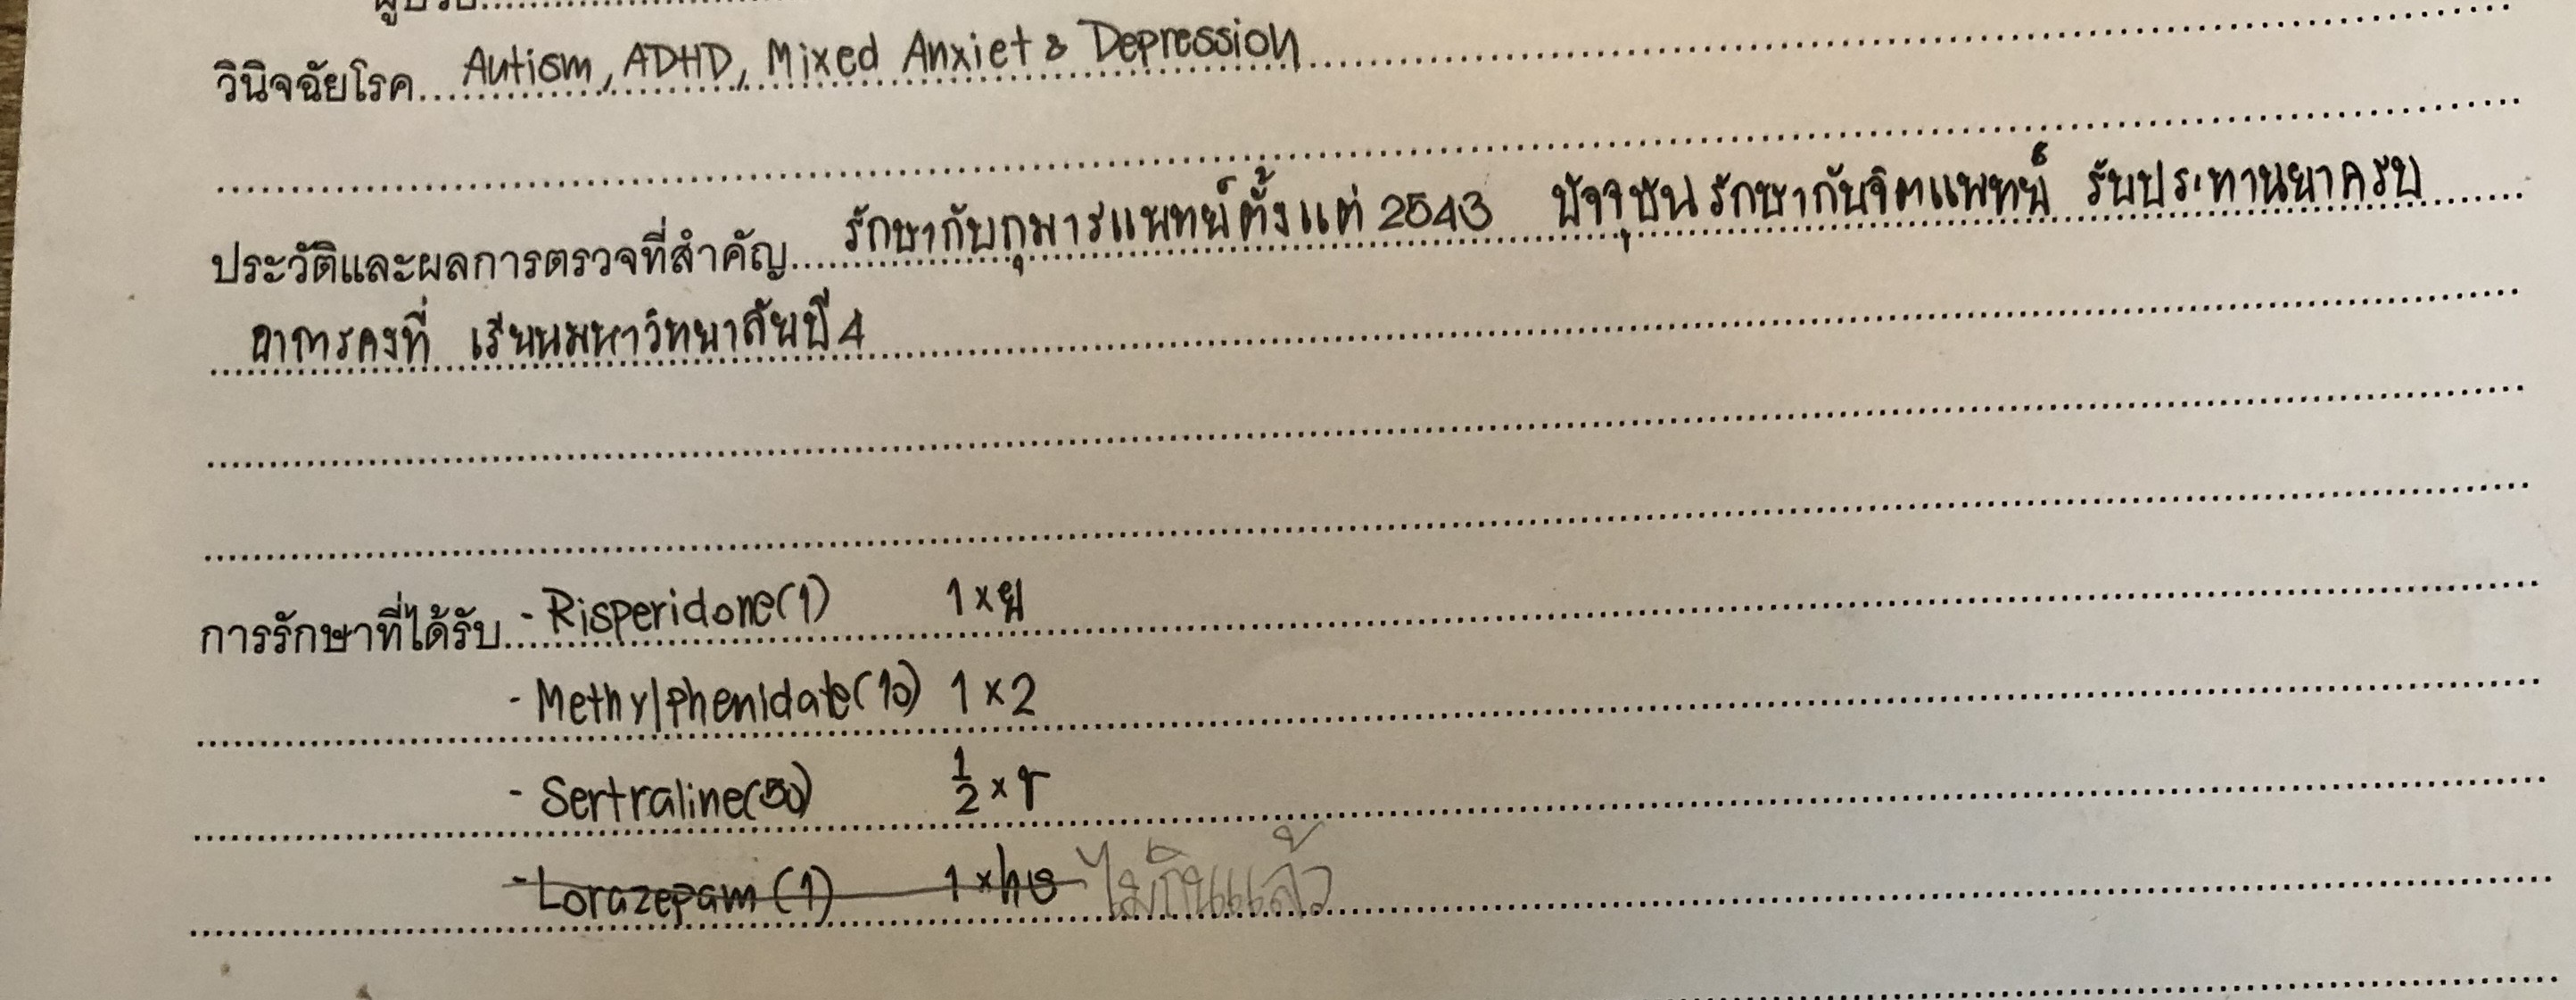 วินิจฉัยโรค.... Autism, ADHD, Mixed Anxiet & Depression
ประวัติและผลการตรวจที่สำคัญ.... รักษากับกุมารแพทย์ตั้งแต่ 2543 ปัจจุบันรักษากับจิตแพทย์ รับประทานยาครบ
อาการคงที่ เรียนมหาวิทยาลัยปี 4
การรักษาที่ได้รับ.... - Risperidone(1) 1 x
- Methylphenidate(10) 1 x 2
- Sertraline(50) 1/2 x
- Lorazepam (1) 1 x hs ไม่กินแล้ว